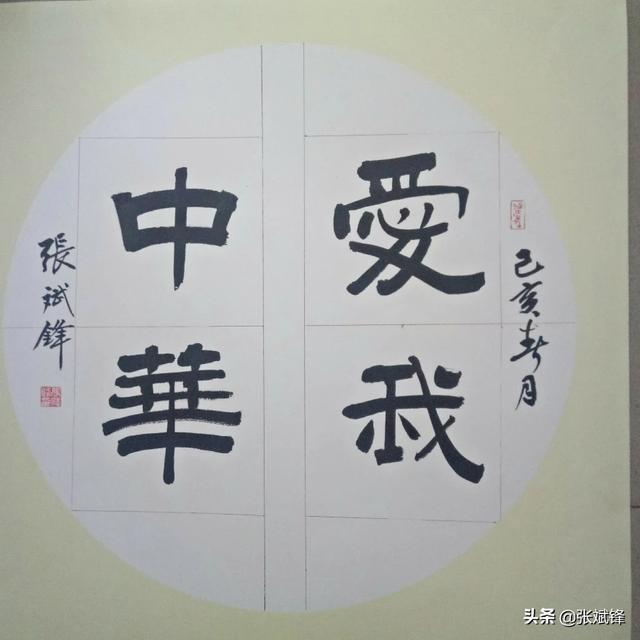 己亥春月
愛我
中華
張斌鋒
头条 @张斌锋